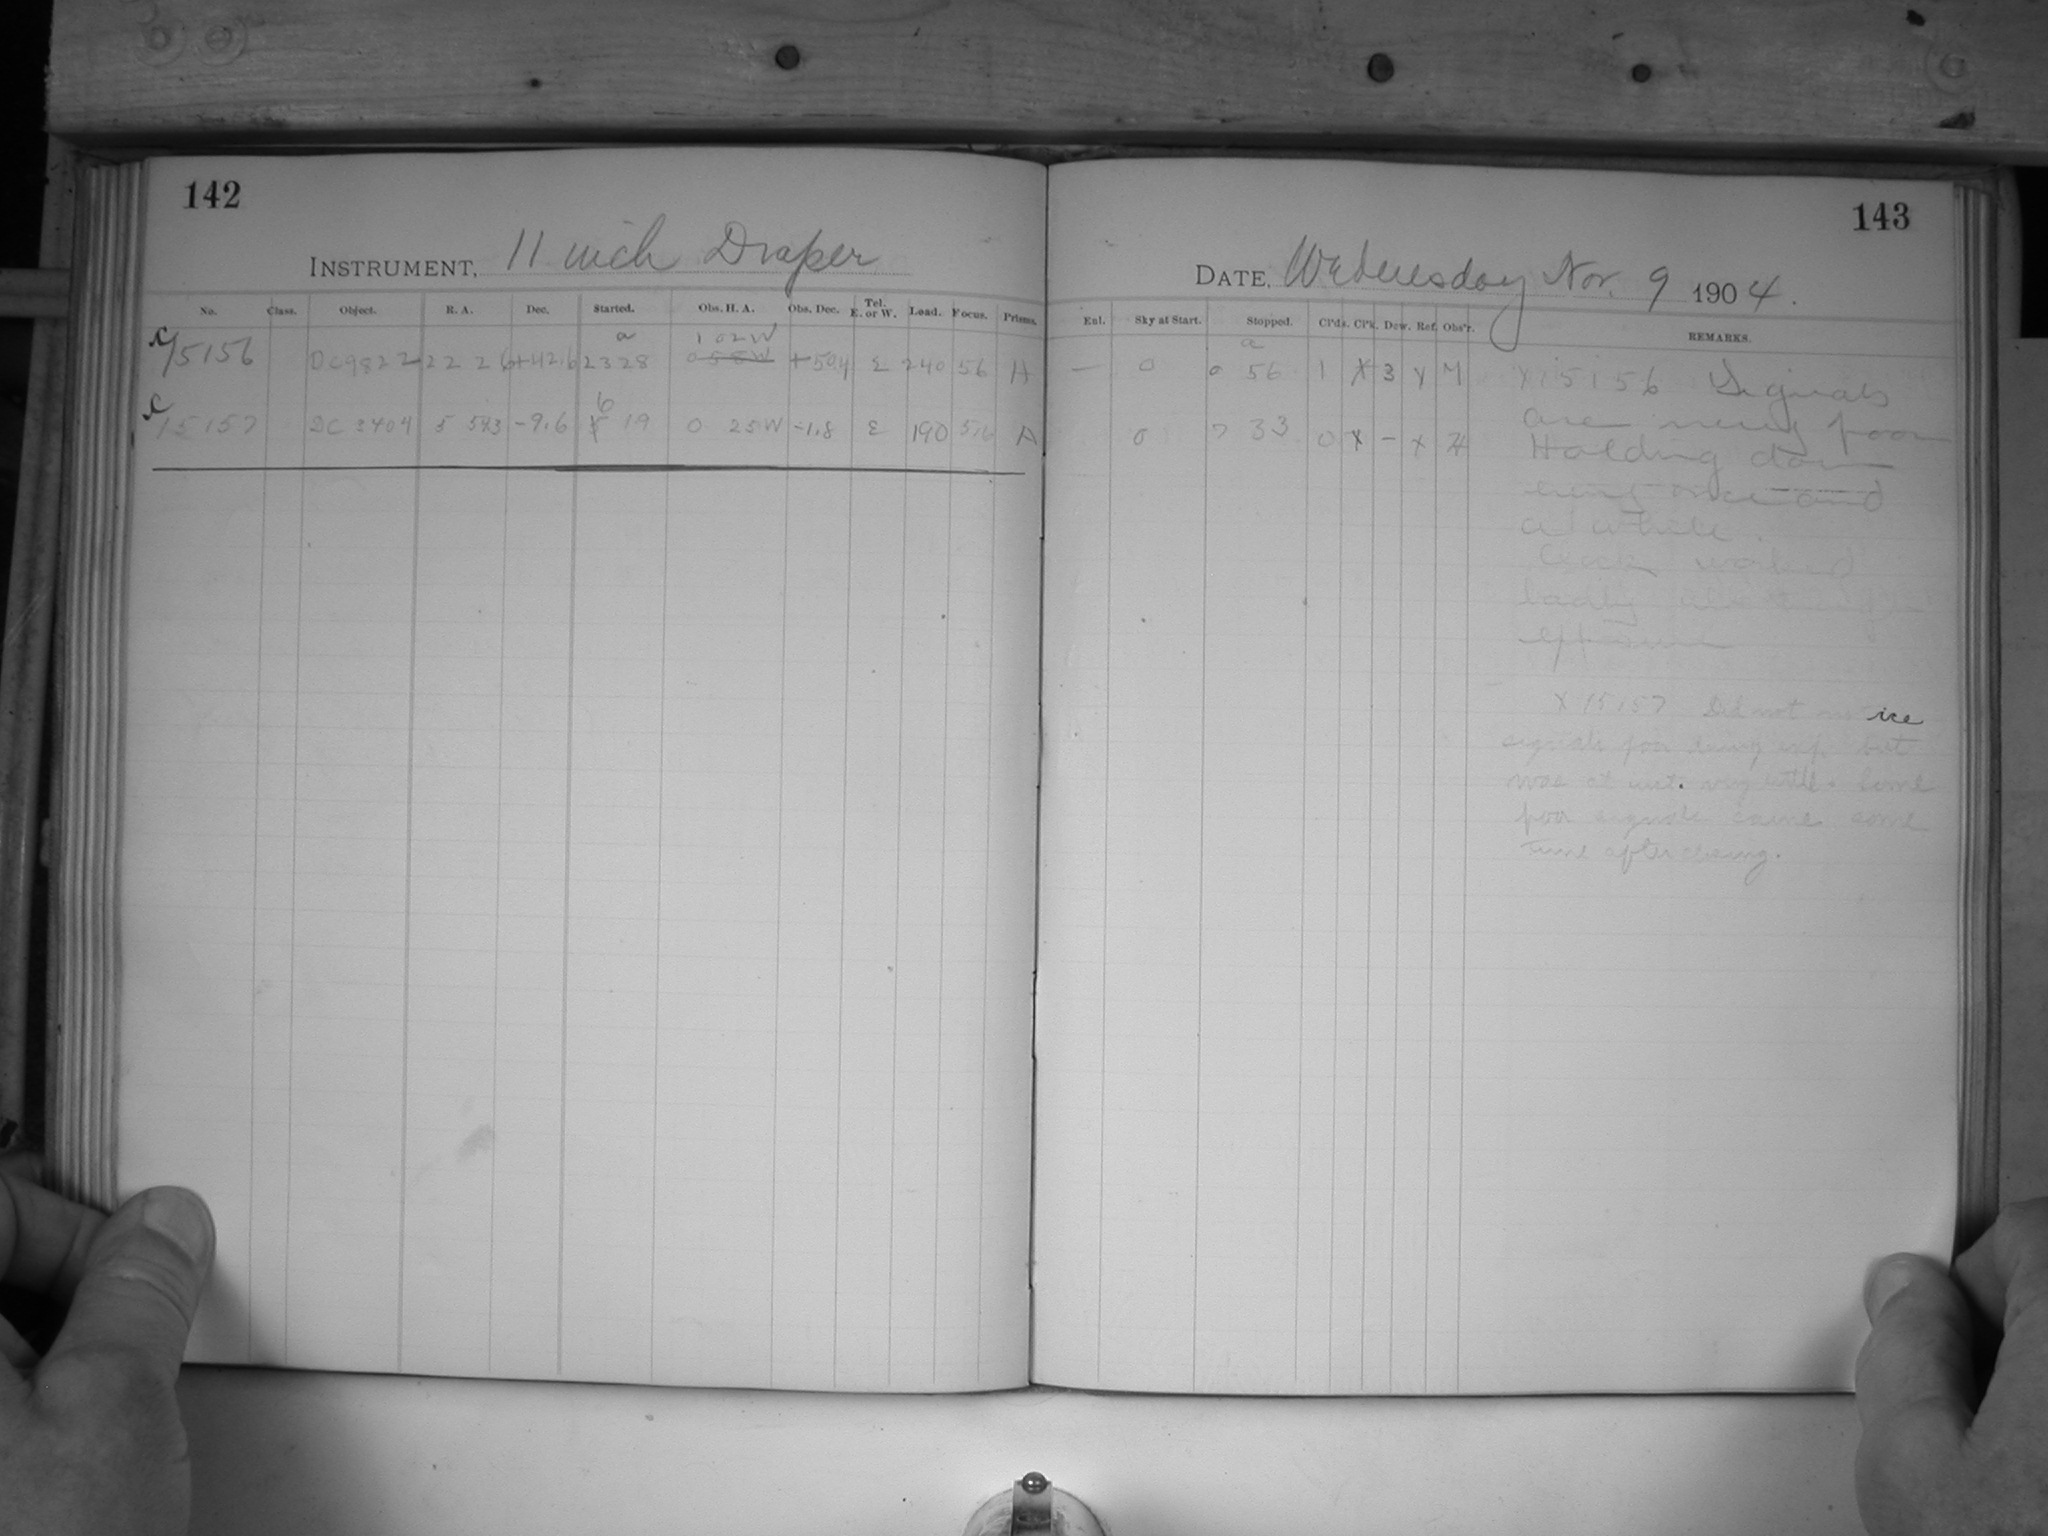 142
143
INSTRUMENT, 11 inch Draper
DATE, Wednesday Nov. 9 1904.
No. Class. Object. R. A. Dec. Started. Obs. H. A. Obs. Dec. Tel. E. or W. Load. Focus. Prisms.
Enl. Sky at Start. Stopped. Cl'ds. Cl'k. Dew. Ref. Obs'r. REMARKS.
a 1 02 W
15156 DC 9822 22 2 6 +42.6 23 28 0 58 W +50.4 E 240 56 A
b
15157 DC 3404 5 54.3 -9.6 19 0 25 W -1.8 E 190 A
a
— 0 0 56 1 X 3 X
0 7 33 0 X - X
X15156 Signals
are very poor
Holding down
every once and
a while.
Clock worked
badly
exposure
X15157 Did not notice
signals poor during exp. but
was at inst. very little. Some
poor signals came some
time after closing.